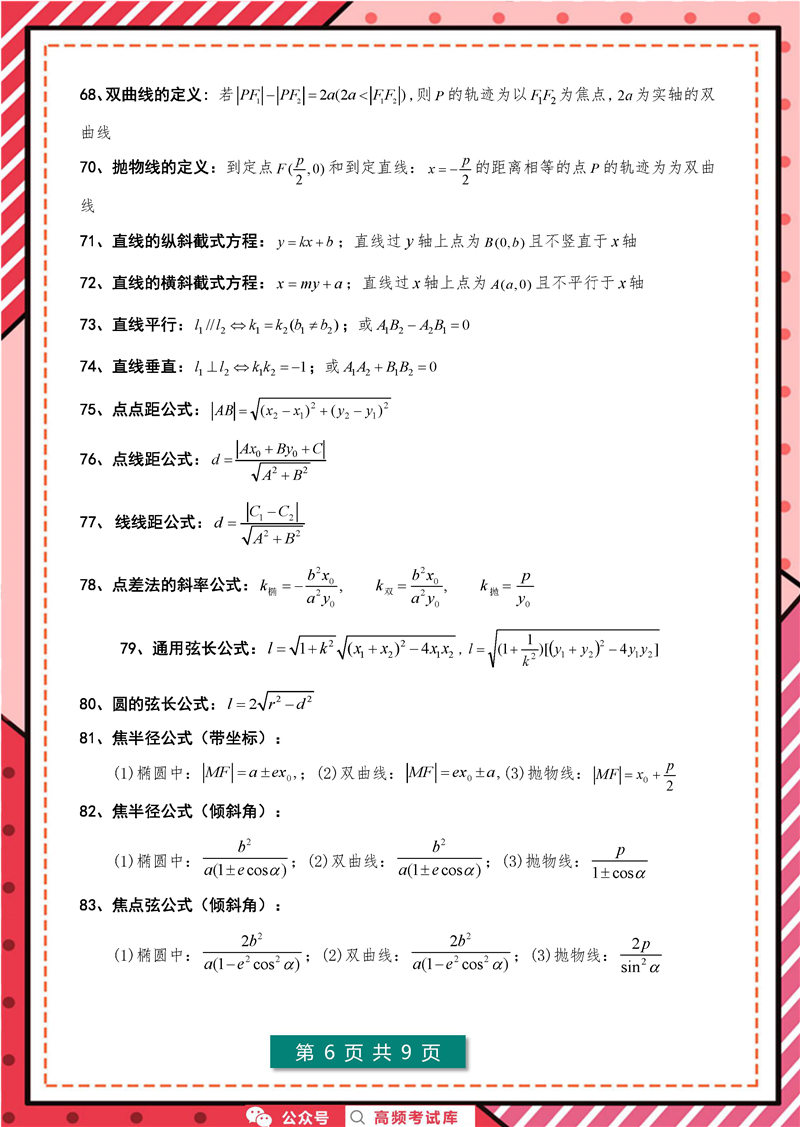 68、双曲线的定义: 若 |PF₁ − PF₂| = 2a(2a < F₁F₂),则 P 的轨迹为以F₁F₂为焦点,2a为实轴的双
曲线
70、抛物线的定义: 到定点F(p/2,0)和到定直线: x=−p/2 的距离相等的点P的轨迹为为双曲
线
71、直线的纵斜截式方程: y=kx+b ; 直线过y轴上点为B(0,b)且不竖直于x轴
72、直线的横斜截式方程: x=my+a ; 直线过x轴上点为A(a,0)且不平行于x轴
73、直线平行: l₁//l₂ ⇔ k₁=k₂(b₁≠b₂); 或A₁B₂−A₂B₁=0
74、直线垂直: l₁⊥l₂ ⇔ k₁k₂=−1; 或A₁A₂+B₁B₂=0
75、点点距公式: |AB|=√((x₂−x₁)²+(y₂−y₁)²)
76、点线距公式: d=|Ax₀+By₀+C|/√(A²+B²)
77、线线距公式: d=|C₁−C₂|/√(A²+B²)
78、点差法的斜率公式: k椭=−b²x₀/a²y₀, k双=b²x₀/a²y₀, k抛=p/y₀
79、通用弦长公式: l=√(1+k²)√((x₁+x₂)²−4x₁x₂), l=√((1+1/k²)[(y₁+y₂)²−4y₁y₂])
80、圆的弦长公式: l=2√(r²−d²)
81、焦半径公式(带坐标):
(1)椭圆中: |MF|=a±ex₀,; (2)双曲线: |MF|=ex₀±a,(3)抛物线: |MF|=x₀+p/2
82、焦半径公式(倾斜角):
(1)椭圆中: b²/a(1±ecosα); (2)双曲线: b²/a(1±ecosα); (3)抛物线: p/1±cosα
83、焦点弦公式(倾斜角):
(1)椭圆中: 2b²/a(1−e²cos²α); (2)双曲线: 2b²/a(1−e²cos²α); (3)抛物线: 2p/sin²α
第 6 页 共 9 页
公众号 高频考试库